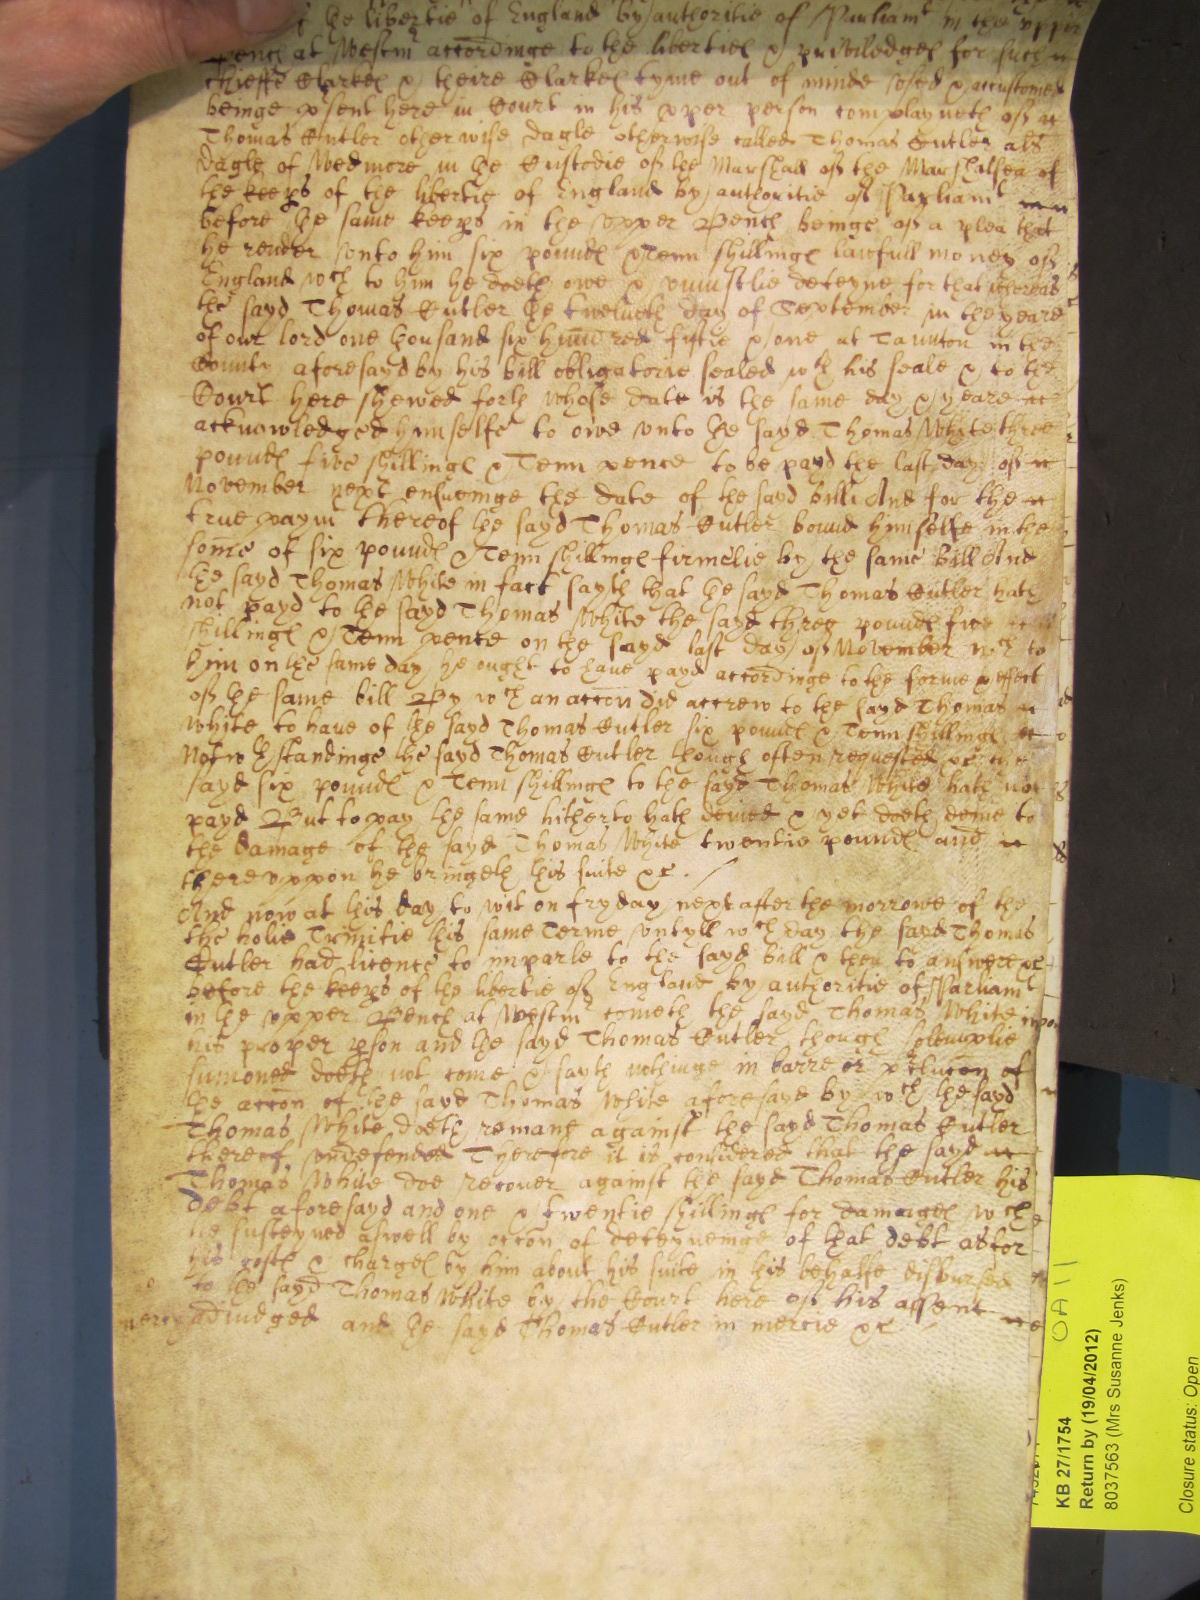 of the libertie of England by authoritie of Parliamt in the upper
Bench at Westmr accordinge to the liberties & priviledges for such
chieffe Clarkes & theire Clarkes tyme out of minde used & accustomed
beinge psent here in Court in his pper person complayneth of
Thomas Cutler otherwise dagle otherwise called Thomas Cutler als
dagle of Wedmore in the Custodie of the Marshall of the Marshalsea of
the keeps of the libertie of England by authoritie of Parliamt
before the same keeps in the Upper Bench beinge of a plea that
he render unto him six pounds & Tenn shillings lawfull money of
England wch to him he doeth owe & uniustlie deteyne for that whereas
the sayd Thomas Cutler the twelveth day of September in the yeare
of our lord one thousand six hundred fiftie & one at Taunton in the
County aforesayd by his bill obligatorie sealed wth his seale & to the
Court here shewed forth whose date is the same day & yeare
acknowledged himselfe to owe unto the sayd Thomas White three
pounds five shillings & Tenn pence to be payd the last day of
November next ensueinge the date of the sayd bill And for the
true paymt thereof the sayd Thomas Cutler bound himselfe in the
some of six pounds & Tenn shillings firmelie by the same Bill And
the sayd Thomas White in fact sayth that the sayd Thomas Cutler hath
not payd to the sayd Thomas White the sayd three pounds five
shillings & Tenn pence on the sayd last day of November wch to
him on the same day he ought to have payd accordinge to the forme & effect
of the same bill By wch an accon did accrew to the sayd Thomas
White to have of the sayd Thomas Cutler six pounds & Tenn shillings
Notwthstandinge the sayd Thomas Cutler though often requested &c the
sayd six pounds & Tenn shillings to the sayd Thomas White hath not
payd But to pay the same hitherto hath denied & yet doeth denie to
the damage of the sayd Thomas White twentie pounds and
thereuppon he bringeth this suite &c.
And now at this day to wit on fryday next after the morrowe of the
the holie Trinitie this same Terme untyll wch day the sayd Thomas
Cutler had licence to imparle to the sayd bill & then to answere &c
before the keeps of the libertie of England by authoritie of Parliamt
in the upper Bench at Westmr cometh the sayd Thomas White in
his proper pson and the sayd Thomas Cutler though solemplie
sumoned doeth not come & sayth nothinge in barre or pclucon of
the accon of the sayd Thomas White aforesayd by wch the sayd
Thomas White doeth remane against the sayd Thomas Cutler
thereof undefended Therefore it is considered that the sayd
Thomas White doe recover against the sayd Thomas Cutler his
debt aforesayd and one & twentie shillings for damages wch
he susteyned aswell by occon of deteyneinge of that debt as for
his costs & charges by him about his suite in this behalfe disbursed
to the sayd Thomas White by the Court here of his assent
mercy adiudged and the sayd Thomas Cutler in mercie &c
KB 27/1754
Return by (19/04/2012)
8037563 (Mrs Susanne Jenks)
Closure status: Open